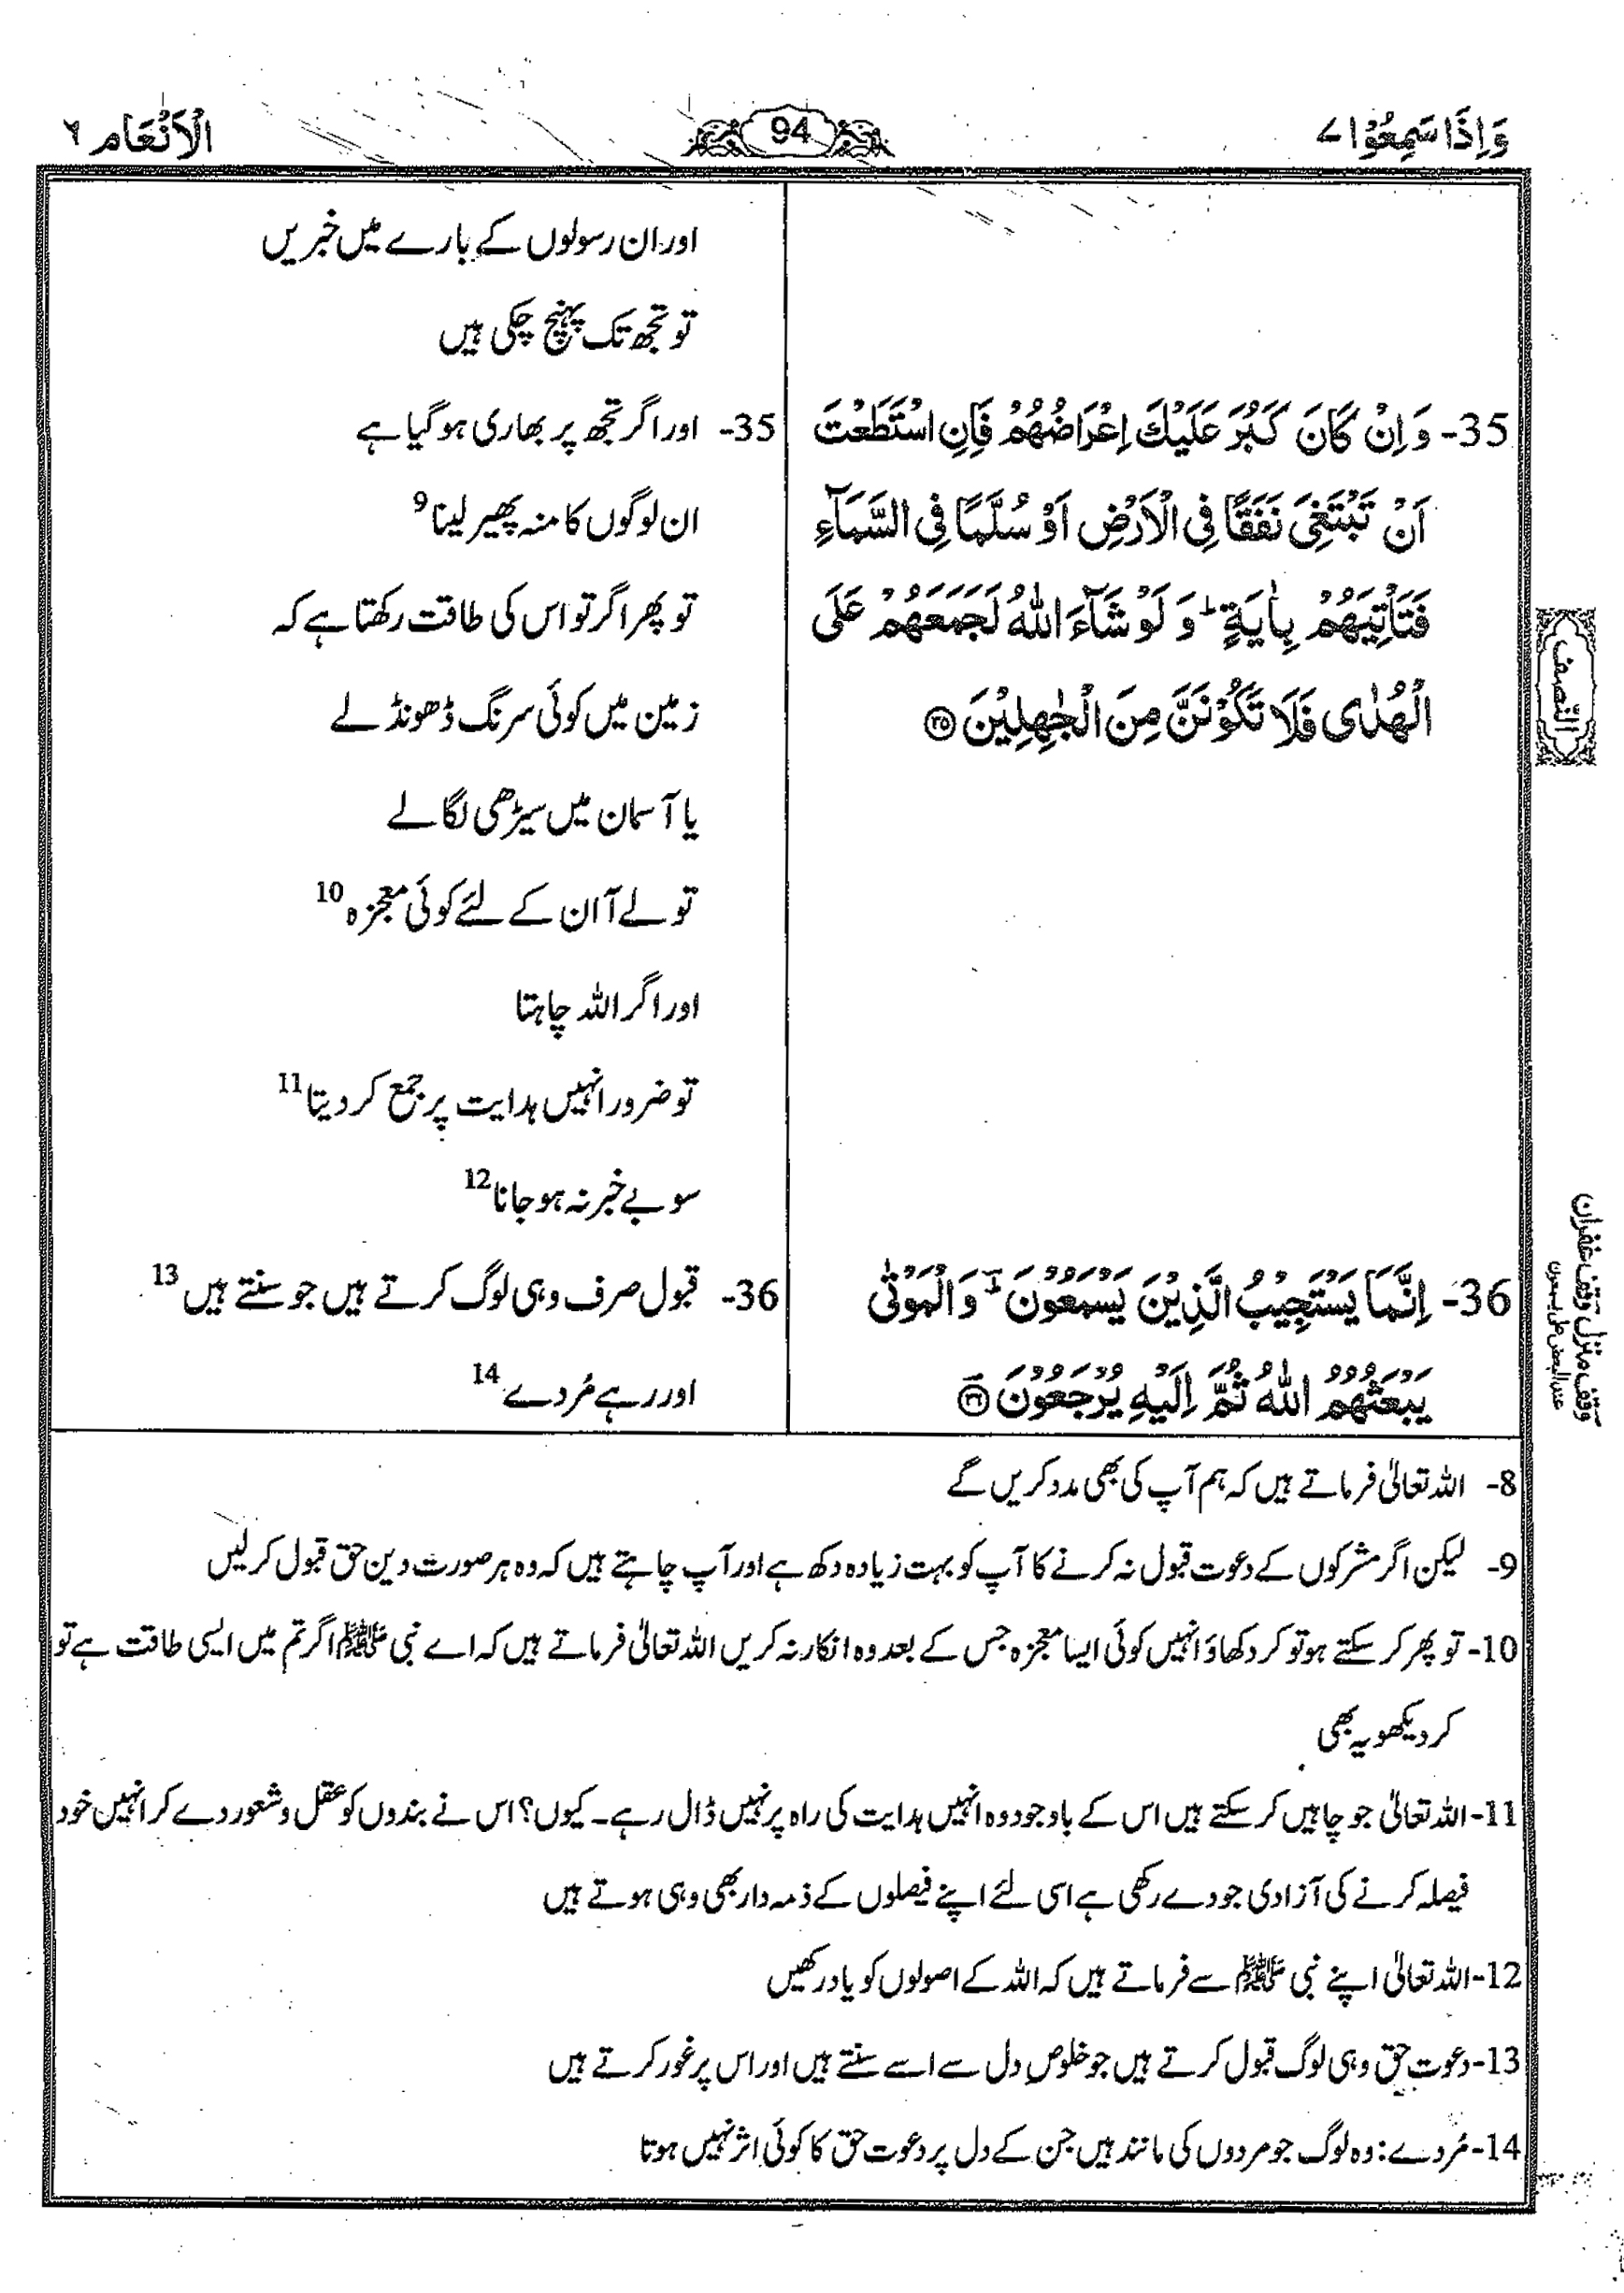 وَاِذَا سَمِعُوْا ٧
94
الْاَنْعَام ٦
اور ان رسولوں کے بارے میں خبریں
تو تجھ تک پہنچ چکی ہیں
35- وَ اِنْ كَانَ كَبُرَ عَلَيْكَ اِعْرَاضُهُمْ فَاِنِ اسْتَطَعْتَ
اَنْ تَبْتَغِيَ نَفَقًا فِي الْاَرْضِ اَوْ سُلَّمًا فِي السَّمَآءِ
فَتَاْتِيَهُمْ بِاٰيَةٍ ؕ وَ لَوْ شَآءَ اللّٰهُ لَجَمَعَهُمْ عَلَى
الْهُدٰى فَلَا تَكُوْنَنَّ مِنَ الْجٰهِلِيْنَ ۝۳۵
35- اور اگر تجھ پر بھاری ہو گیا ہے
ان لوگوں کا منہ پھیر لینا 9
تو پھر اگر تو اس کی طاقت رکھتا ہے کہ
زمین میں کوئی سرنگ ڈھونڈ لے
یا آسمان میں سیڑھی لگا لے
تو لے آ ان کے لئے کوئی معجزہ 10
اور اگر اللہ چاہتا
تو ضرور انہیں ہدایت پر جمع کر دیتا 11
سو بے خبر نہ ہو جانا 12
36- اِنَّمَا يَسْتَجِيْبُ الَّذِيْنَ يَسْمَعُوْنَ ؔ وَ الْمَوْتٰى
يَبْعَثُهُمُ اللّٰهُ ثُمَّ اِلَيْهِ يُرْجَعُوْنَ ۝۳۶
36- قبول صرف وہی لوگ کرتے ہیں جو سنتے ہیں 13
اور رہے مُردے 14
النّصف
وقف منزل وقف غفران
8- اللہ تعالیٰ فرماتے ہیں کہ ہم آپ کی بھی مدد کریں گے
9- لیکن اگر مشرکوں کے دعوت قبول نہ کرنے کا آپ کو بہت زیادہ دکھ ہے اور آپ چاہتے ہیں کہ وہ ہر صورت دین حق قبول کر لیں
10- تو پھر کر سکتے ہو تو کر دکھاؤ انہیں کوئی ایسا معجزہ جس کے بعد وہ انکار نہ کریں اللہ تعالیٰ فرماتے ہیں کہ اے نبی ﷺ اگر تم میں ایسی طاقت ہے تو
کر دیکھو یہ بھی
11- اللہ تعالیٰ جو چاہیں کر سکتے ہیں اس کے باوجود وہ انہیں ہدایت کی راہ پر نہیں ڈال رہے۔ کیوں؟ اس نے بندوں کو عقل و شعور دے کر انہیں خود
فیصلہ کرنے کی آزادی جو دے رکھی ہے اسی لئے اپنے فیصلوں کے ذمہ دار بھی وہی ہوتے ہیں
12- اللہ تعالیٰ اپنے نبی ﷺ سے فرماتے ہیں کہ اللہ کے اصولوں کو یاد رکھیں
13- دعوت حق وہی لوگ قبول کرتے ہیں جو خلوصِ دل سے اسے سنتے ہیں اور اس پر غور کرتے ہیں
14- مُردے: وہ لوگ جو مردوں کی مانند ہیں جن کے دل پر دعوت حق کا کوئی اثر نہیں ہوتا